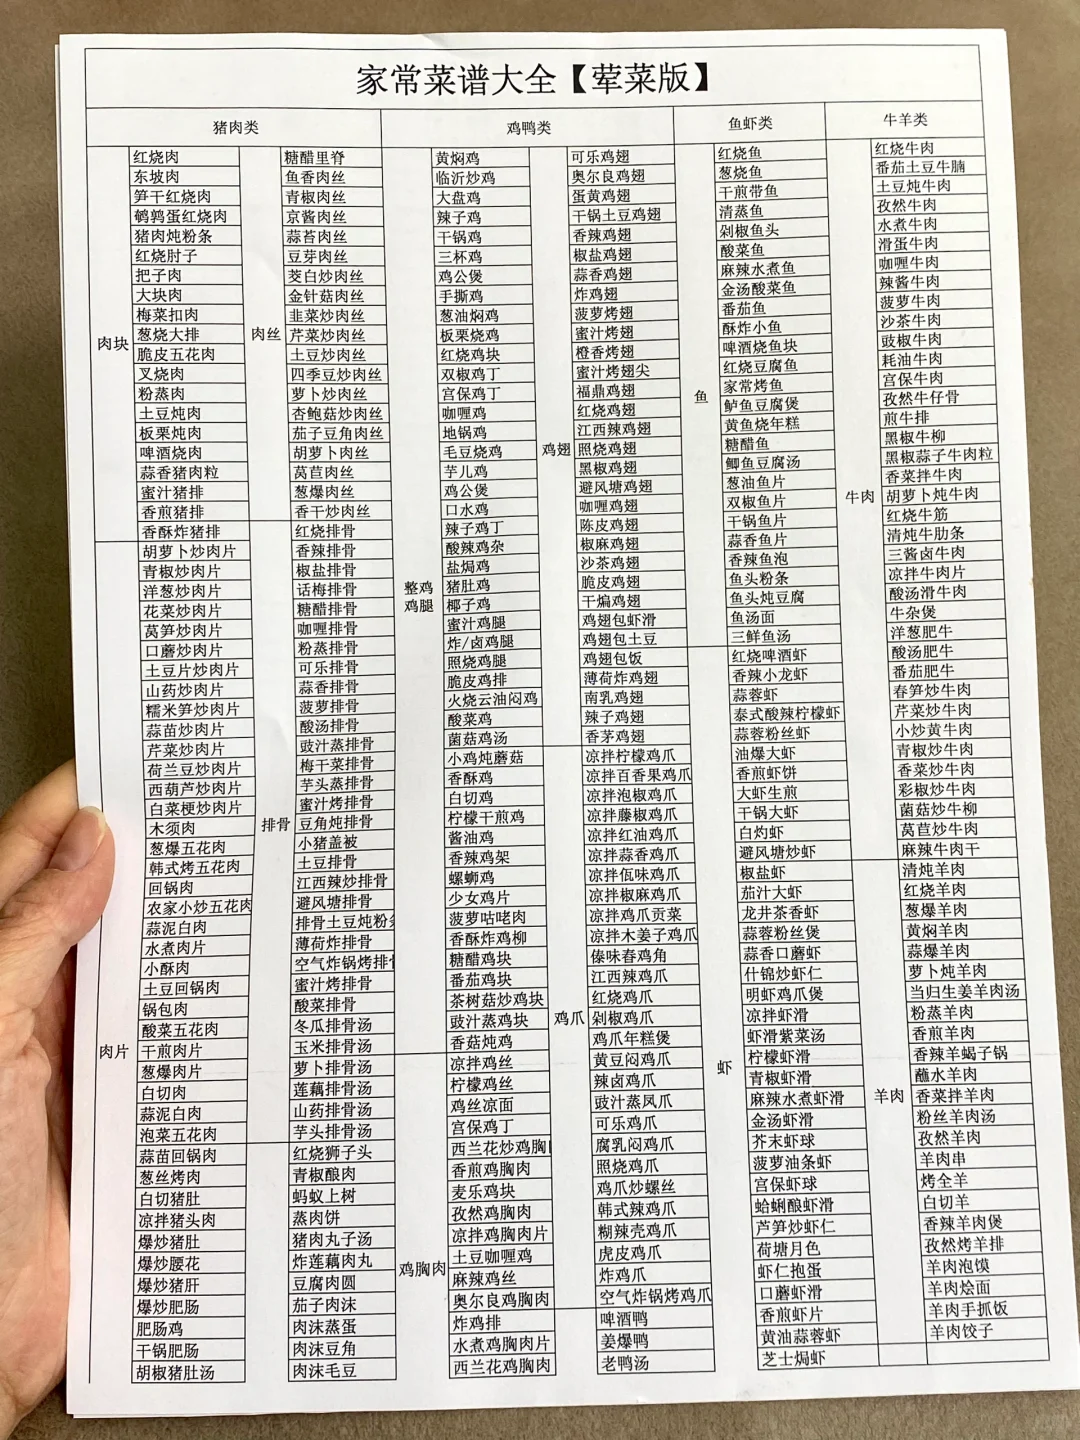 家常菜谱大全【荤菜版】
猪肉类
肉块
红烧肉
东坡肉
笋干红烧肉
鹌鹑蛋红烧肉
猪肉炖粉条
红烧肘子
把子肉
大块肉
梅菜扣肉
葱烧大排
脆皮五花肉
叉烧肉
粉蒸肉
土豆炖肉
板栗炖肉
啤酒烧肉
蒜香猪肉粒
蜜汁猪排
香煎猪排
香酥炸猪排
肉片
胡萝卜炒肉片
青椒炒肉片
洋葱炒肉片
花菜炒肉片
莴笋炒肉片
口蘑炒肉片
土豆片炒肉片
山药炒肉片
糯米笋炒肉片
蒜苗炒肉片
芹菜炒肉片
荷兰豆炒肉片
西葫芦炒肉片
白菜梗炒肉片
木须肉
葱爆五花肉
韩式烤五花肉
回锅肉
农家小炒五花肉
蒜泥白肉
水煮肉片
小酥肉
土豆回锅肉
锅包肉
酸菜五花肉
干煎肉片
葱爆肉片
白切肉
蒜泥白肉
泡菜五花肉
蒜苗回锅肉
葱丝烤肉
白切猪肚
凉拌猪头肉
爆炒猪肚
爆炒腰花
爆炒猪肝
爆炒肥肠
肥肠鸡
干锅肥肠
胡椒猪肚汤
肉丝
糖醋里脊
鱼香肉丝
青椒肉丝
京酱肉丝
蒜苔肉丝
豆芽肉丝
茭白炒肉丝
金针菇肉丝
韭菜炒肉丝
芹菜炒肉丝
土豆炒肉丝
四季豆炒肉丝
萝卜炒肉丝
杏鲍菇炒肉丝
茄子豆角肉丝
胡萝卜肉丝
莴苣肉丝
葱爆肉丝
香干炒肉丝
排骨
红烧排骨
香辣排骨
椒盐排骨
话梅排骨
糖醋排骨
咖喱排骨
粉蒸排骨
可乐排骨
蒜香排骨
菠萝排骨
酸汤排骨
豉汁蒸排骨
梅干菜排骨
芋头蒸排骨
蜜汁烤排骨
豆角炖排骨
小猪盖被
土豆排骨
江西辣炒排骨
避风塘排骨
排骨土豆炖粉条
薄荷炸排骨
空气炸锅烤排骨
蜜汁烤排骨
酸菜排骨
冬瓜排骨汤
玉米排骨汤
萝卜排骨汤
莲藕排骨汤
山药排骨汤
芋头排骨汤
红烧狮子头
青椒酿肉
蚂蚁上树
蒸肉饼
猪肉丸子汤
炸莲藕肉丸
豆腐肉圆
茄子肉沫
肉沫蒸蛋
肉沫豆角
肉沫毛豆
鸡鸭类
整鸡
鸡腿
黄焖鸡
临沂炒鸡
大盘鸡
辣子鸡
干锅鸡
三杯鸡
鸡公煲
手撕鸡
葱油焖鸡
板栗烧鸡
红烧鸡块
双椒鸡丁
宫保鸡丁
咖喱鸡
地锅鸡
毛豆烧鸡
芋儿鸡
鸡公煲
口水鸡
辣子鸡丁
酸辣鸡杂
盐焗鸡
猪肚鸡
椰子鸡
蜜汁鸡腿
炸/卤鸡腿
照烧鸡腿
脆皮鸡排
火烧云油闷鸡
酸菜鸡
菌菇鸡汤
小鸡炖蘑菇
香酥鸡
白切鸡
柠檬干煎鸡
酱油鸡
香辣鸡架
螺蛳鸡
少女鸡片
菠萝咕咾肉
香酥炸鸡柳
糖醋鸡块
番茄鸡块
茶树菇炒鸡块
豉汁蒸鸡块
香菇炖鸡
鸡胸肉
凉拌鸡丝
柠檬鸡丝
鸡丝凉面
宫保鸡丁
西兰花炒鸡胸
香煎鸡胸肉
麦乐鸡块
孜然鸡胸肉
凉拌鸡胸肉片
土豆咖喱鸡
麻辣鸡丝
奥尔良鸡胸肉
炸鸡排
水煮鸡胸肉片
西兰花鸡胸肉
鸡翅
可乐鸡翅
奥尔良鸡翅
蛋黄鸡翅
干锅土豆鸡翅
香辣鸡翅
椒盐鸡翅
蒜香鸡翅
炸鸡翅
菠萝烤翅
蜜汁烤翅
橙香烤翅
蜜汁烤翅尖
福鼎鸡翅
红烧鸡翅
江西辣鸡翅
照烧鸡翅
黑椒鸡翅
避风塘鸡翅
咖喱鸡翅
陈皮鸡翅
椒麻鸡翅
沙茶鸡翅
脆皮鸡翅
干煸鸡翅
鸡翅包虾滑
鸡翅包土豆
鸡翅包饭
薄荷炸鸡翅
南乳鸡翅
辣子鸡翅
香茅鸡翅
鸡爪
凉拌柠檬鸡爪
凉拌百香果鸡爪
凉拌泡椒鸡爪
凉拌藤椒鸡爪
凉拌红油鸡爪
凉拌蒜香鸡爪
凉拌佤味鸡爪
凉拌椒麻鸡爪
凉拌鸡爪贡菜
凉拌木姜子鸡爪
傣味舂鸡角
江西辣鸡爪
红烧鸡爪
剁椒鸡爪
鸡爪年糕煲
黄豆闷鸡爪
辣卤鸡爪
豉汁蒸凤爪
可乐鸡爪
腐乳闷鸡爪
照烧鸡爪
鸡爪炒螺丝
韩式辣鸡爪
糊辣壳鸡爪
虎皮鸡爪
炸鸡爪
空气炸锅烤鸡爪
啤酒鸭
姜爆鸭
老鸭汤
鱼虾类
鱼
红烧鱼
葱烧鱼
干煎带鱼
清蒸鱼
剁椒鱼头
酸菜鱼
麻辣水煮鱼
金汤酸菜鱼
番茄鱼
酥炸小鱼
啤酒烧鱼块
红烧豆腐鱼
家常烤鱼
鲈鱼豆腐煲
黄鱼烧年糕
糖醋鱼
鲫鱼豆腐汤
葱油鱼片
双椒鱼片
干锅鱼片
蒜香鱼片
香辣鱼泡
鱼头粉条
鱼头炖豆腐
鱼汤面
三鲜鱼汤
虾
红烧啤酒虾
香辣小龙虾
蒜蓉虾
泰式酸辣柠檬虾
蒜蓉粉丝虾
油爆大虾
香煎虾饼
大虾生煎
干锅大虾
白灼虾
避风塘炒虾
椒盐虾
茄汁大虾
龙井茶香虾
蒜蓉粉丝煲
蒜香口蘑虾
什锦炒虾仁
明虾鸡爪煲
凉拌虾滑
虾滑紫菜汤
柠檬虾滑
青椒虾滑
麻辣水煮虾滑
金汤虾滑
芥末虾球
菠萝油条虾
宫保虾球
蛤蜊酿虾滑
芦笋炒虾仁
荷塘月色
虾仁抱蛋
口蘑虾滑
香煎虾片
黄油蒜蓉虾
芝士焗虾
牛羊类
牛肉
红烧牛肉
番茄土豆牛腩
土豆炖牛肉
孜然牛肉
水煮牛肉
滑蛋牛肉
咖喱牛肉
辣酱牛肉
菠萝牛肉
沙茶牛肉
豉椒牛肉
耗油牛肉
宫保牛肉
孜然牛仔骨
煎牛排
黑椒牛柳
黑椒蒜子牛肉粒
香菜拌牛肉
胡萝卜炖牛肉
红烧牛筋
清炖牛肋条
三酱卤牛肉
凉拌牛肉片
酸汤滑牛肉
牛杂煲
洋葱肥牛
酸汤肥牛
番茄肥牛
春笋炒牛肉
芹菜炒牛肉
小炒黄牛肉
青椒炒牛肉
香菜炒牛肉
彩椒炒牛肉
菌菇炒牛柳
莴苣炒牛肉
麻辣牛肉干
羊肉
清炖羊肉
红烧羊肉
葱爆羊肉
黄焖羊肉
蒜爆羊肉
萝卜炖羊肉
当归生姜羊肉汤
粉蒸羊肉
香煎羊肉
香辣羊蝎子锅
蘸水羊肉
香菜拌羊肉
粉丝羊肉汤
孜然羊肉
羊肉串
烤全羊
白切羊
香辣羊肉煲
孜然烤羊排
羊肉泡馍
羊肉烩面
羊肉手抓饭
羊肉饺子